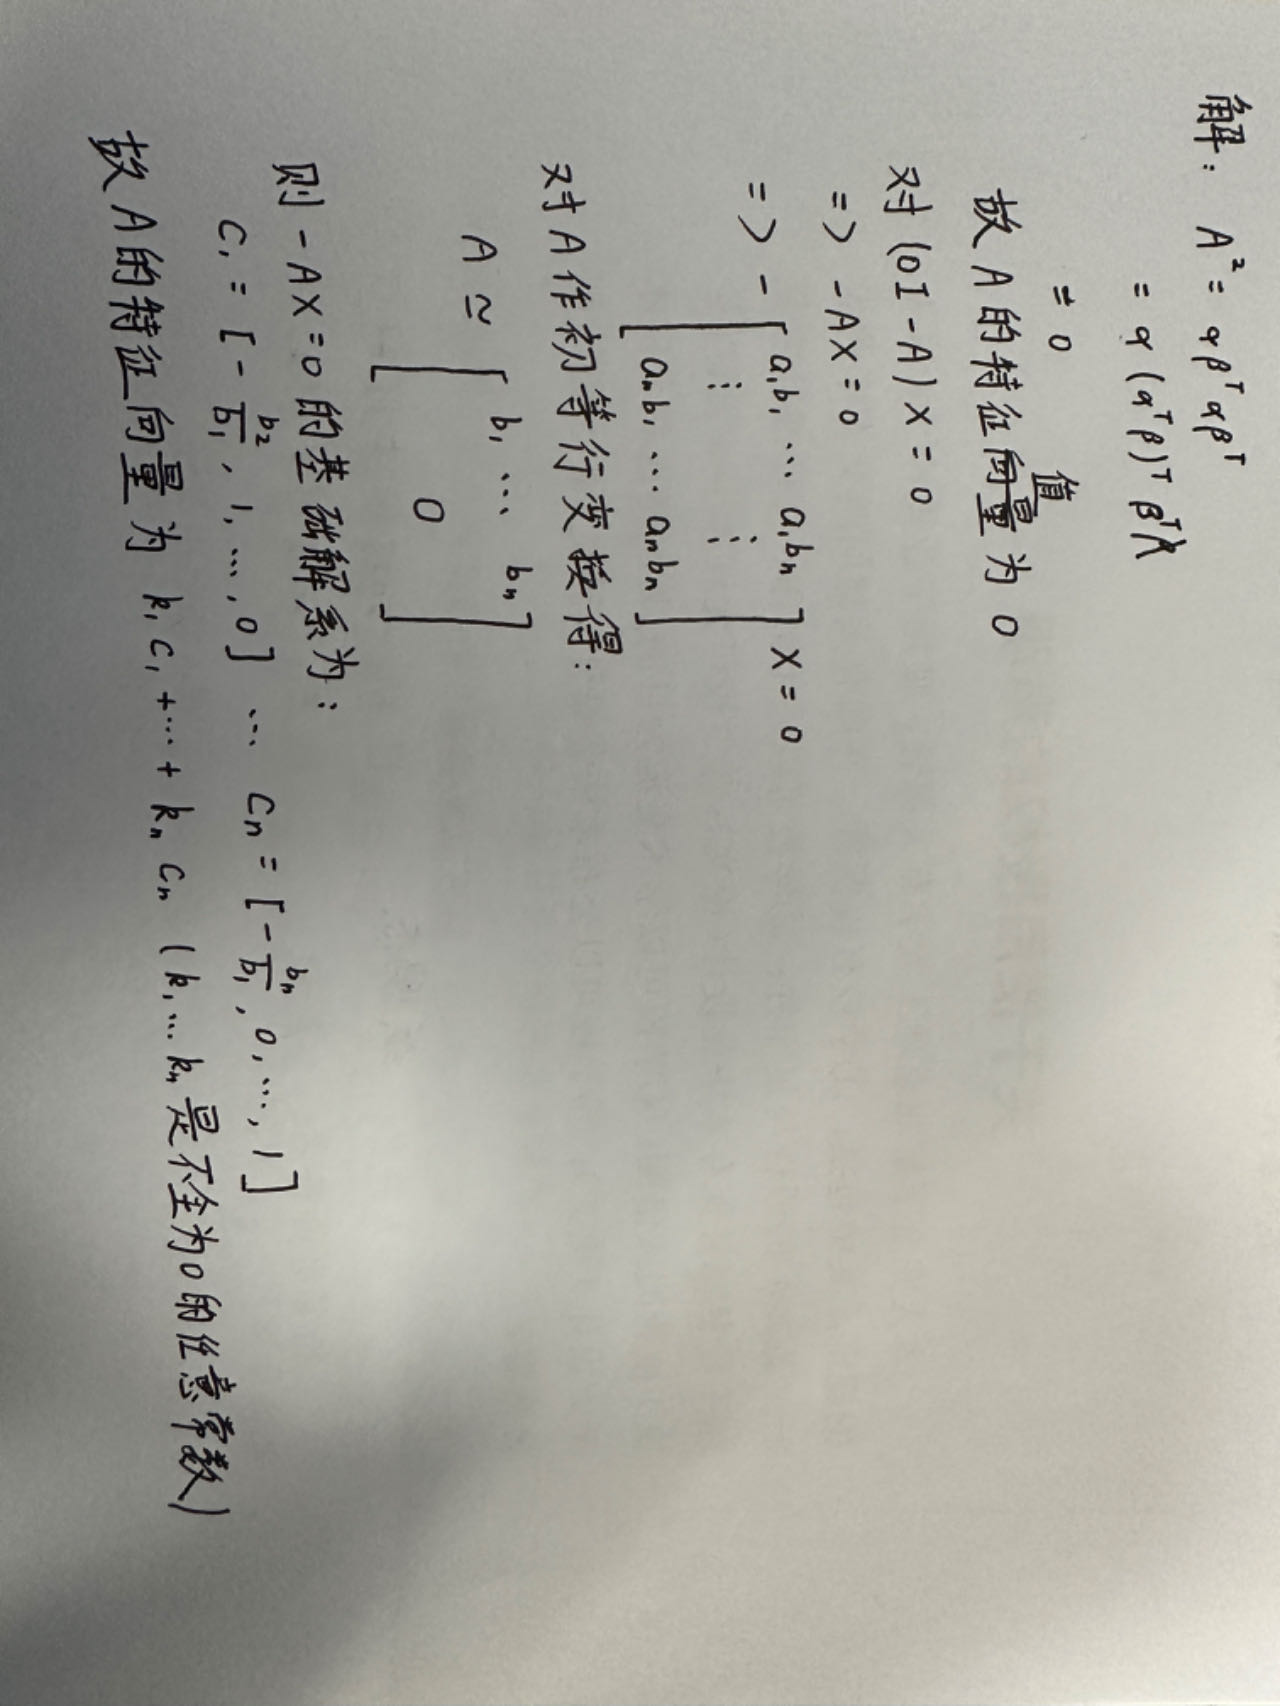 解： A² = αβᵀαβᵀ
= α(αᵀβ)ᵀβᵀ
= 0
故A的特征值为0
对(0I-A)X=0
=> -AX=0
=> - [ a₁b₁ ... a₁bₙ
⋮ ⋮
aₙb₁ ... aₙbₙ ] X=0
对A作初等行变换得：
A ≃ [ b₁ ... bₙ
0 ]
则-AX=0的基础解系为：
C₁ = [-b₂/b₁, 1, ..., 0] ... Cₙ = [-bₙ/b₁, 0, ..., 1]
故A的特征向量为 k₁C₁+...+kₙCₙ (k₁...kₙ是不全为0的任意常数)